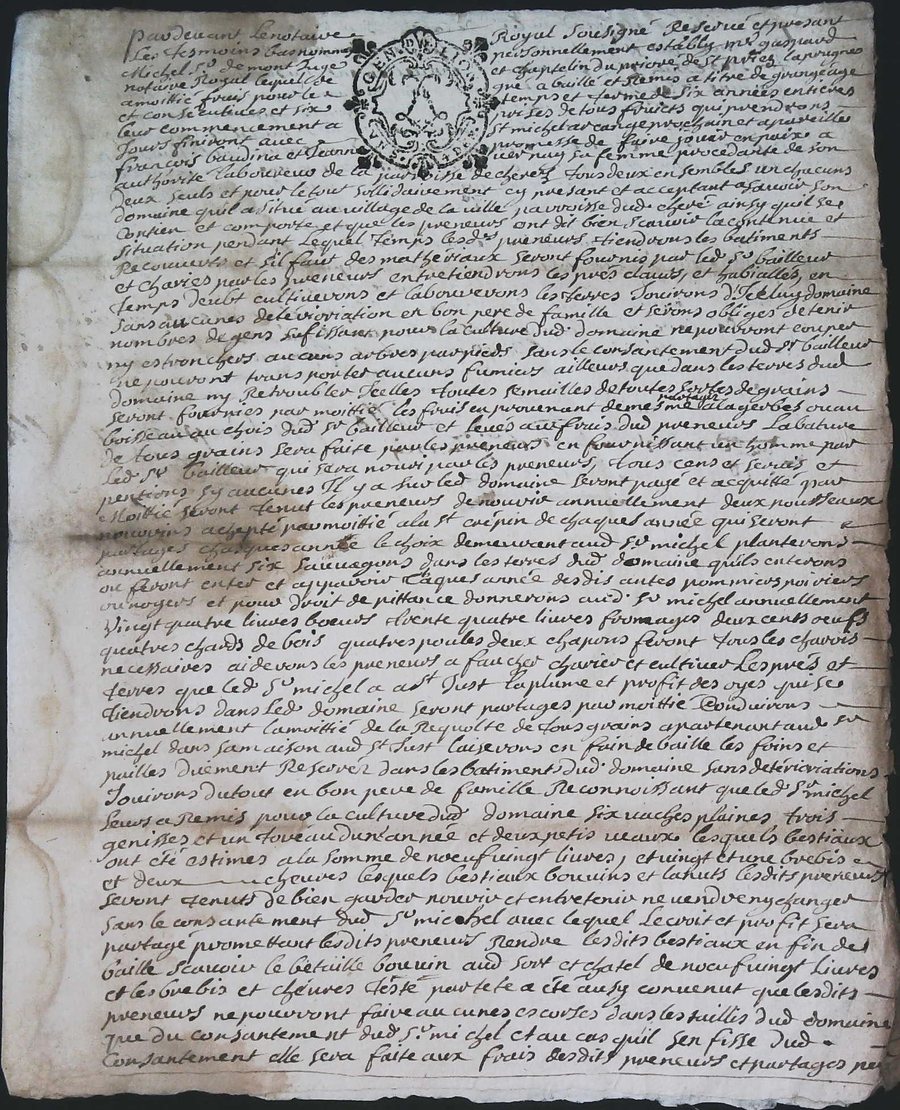 pardevant Le notaire Royal Sousigné Reservé et presant
Les tesmoins bas nommes personnellement estably mre gaspard
Michel Sr de mont Juge et chatelin du prioré de St priez laprugne
notaire Royal lequel de gré a baillé et Remis a titre de grangeage
a moitié fruis pour le temps et ferme de six années entieres
et consecutives et six prises de tous fruicts qui prendrons
leur commencement a St michel arcange prochain et a pareille
Jours finiront avec promesse de faire jouir en paix a
françois baudina et Jeanne vernay sa femme procedante de son
authorité Laboureur de la parroisse de cherez tous deux ensembles un chacuns
deux seuls et pour le tout sollidairement cy presant et acceptant a sauoir son
domaine quil a situé au village de la ville parroisse dud cheré ainsy quil se
contien et comporte et que les preneurs ont dit bien scauoir la contenue et
situation pendant Lequel temps lesds preneurs tiendrons les batiments
Recouverts et sil faut des matheriaux seront fournis par led Sr bailleur
et chariés par les preneurs entretiendrons les prés clauts et habialles en
temps deubt cultiuerons et labourerons les terres Jouirons d'Icelluy domaine
sans aucunes deterioriation en bon pere de famille et serons obliges de tenir
nombres de gens sufissant pour la culture dud domaine ne pourront couper
ny estroncher aucuns arbres par pieds sans le consantement dud Sr bailleur
ne pouront transporter aucuns fumiers ailleurs que dans les terres dud
domaine ny Retroubler Icelles toutes semailles de toutes sortes de grains
seront fournies par moittié les fruis en provenant de mesme partager a la gerbes ou au
boisseau au choix dud Sr bailleur et leués aux frais dud preneurs La bature
de tous grains sera faite par les preneurs en fournissant un homme par
Led Sr bailleur qui sera nouri par les preneurs, tous cens et seruis et
pentions sy aucunes Il y a sur led domaine seront payé et acquitté par
Moittié seront tenut les preneurs de nourir annuellement deux pourseaux
nourrins achepté par moittié a la St crépin de chaques année qui seront
partages chasques année le choix demeurant aud Sr michel planterons
annuellement six sauuagons dans les terres dud domaine quils enterons
ou feront enter et apparoir chaques année desdis antes pommiers poiriers
ou noyers et pour droit de pittance donnerons aud Sr michel annuellement
Vingt quatre liures beures trente quatre liures fromages deux cents oeufs
quatres chards de bois quatres poules deux chapons feront tous les charois
necessaires aiderons les preneurs a faucher charier et cultiuer Les prés et
terres que led Sr michel a a St Just La plume et profit des oyes qui se
tiendrons dans led domaine seront partages par moittié Conduirons
annuellement la moittié de la Requolte de tous grains apartenant aud Sr
michel dans sa maison aud St Just laiserons en fain de baille les foins et
pailles duement Reserréz dans les batiments dud domaine sans deterioriations
Jouirons du tout en bon pere de famille Reconnoissant que led Sr michel
leurs a Remis pour la culture dud domaine six uaches plaines trois
genisses et un toreau d'un année et deux petis ueaux lesquels bestiaux
ont été estimés a la somme de noeufuingt liures, et uingt et une brebis
et deux chevres lesquels bestiaux bouuins et lanuts lesdits preneurs
seront tenuts de bien garder nourir et entretenir ne uendre ny changer
sans le consantement dud Sr michel avec lequel Le croit et profit sera
partagé promettant lesdits preneurs Rendre lesdits bestiaux en fin de
baille scauoir le bétaille bouuin aud sort et chatel de noeufuingt liures
et les brebis et cheures testé par tete a été ausy conuenut que lesdits
preneurs ne pourront faire aucunes escorses dans les taillis dud domaine
que du consantement dud Sr michel et au cas qu'il s'en fisse dud
Consantement elle sera faite aux frais desdits preneurs et partages par